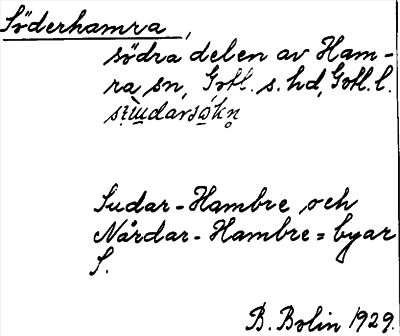 Söderhamra,
södra delen av Ham-
ra sn, Gotl. s. hd, Gotl. l.
Sudar-Hambre och
Nårdar-Hambre = byar
S.
B. Bolin 1929.